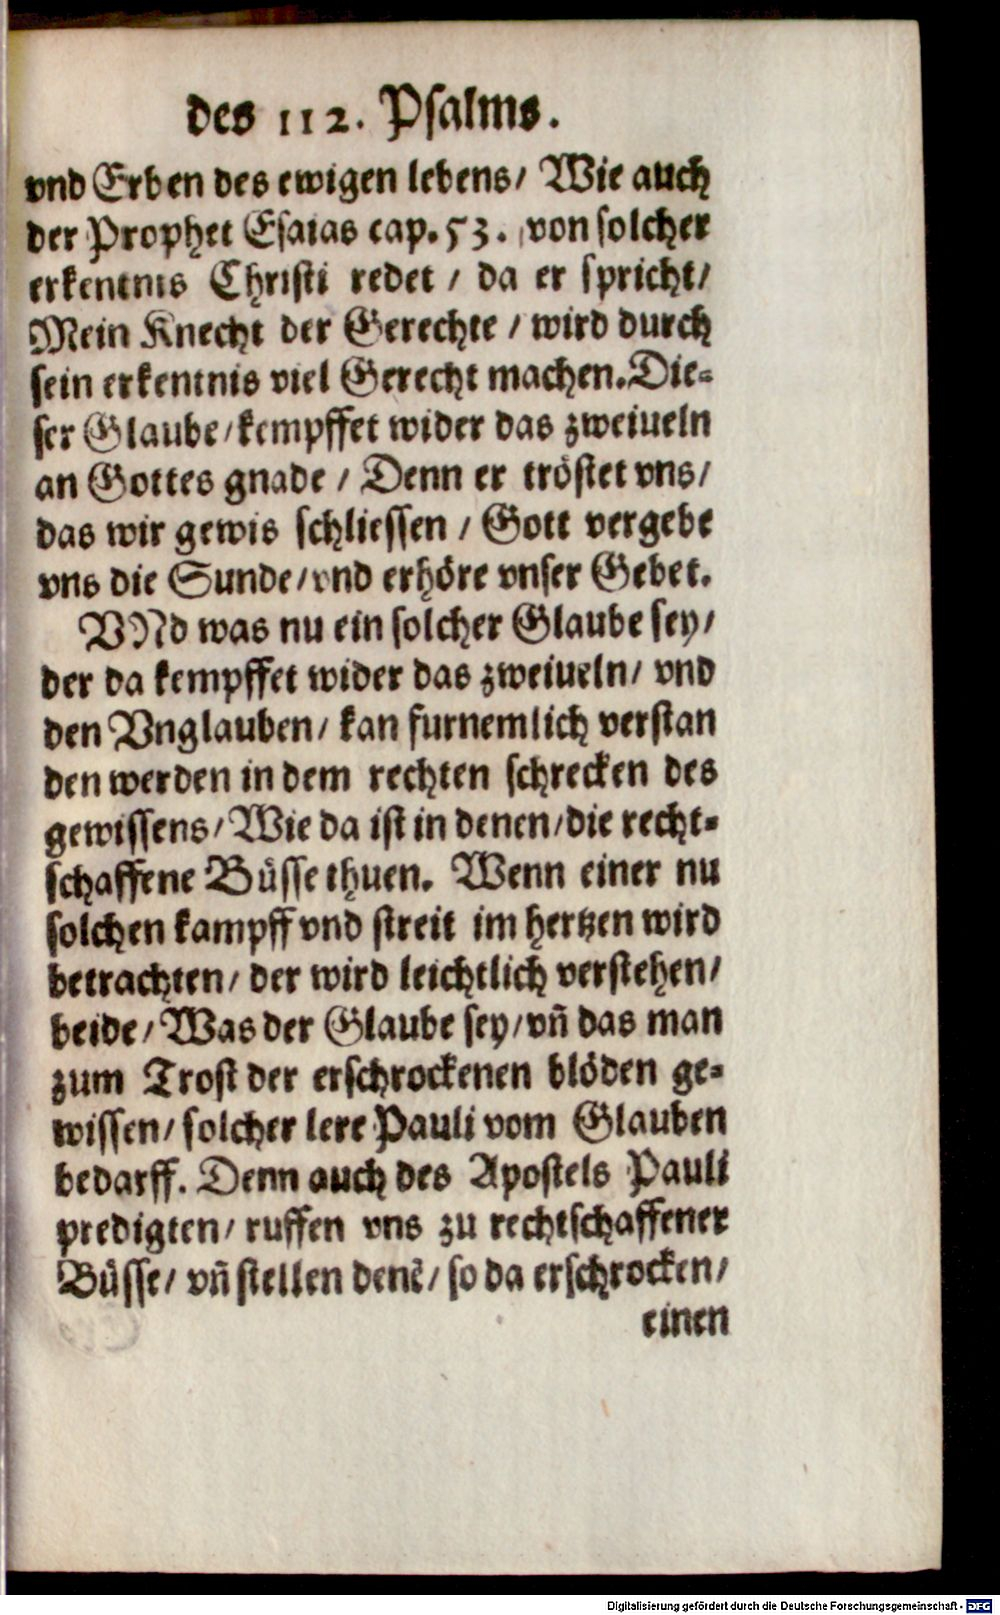 des 112. Psalms.
vnd Erben des ewigen lebens/ Wie auch
der Prophet Esaias cap. 53. von solcher
erkentnis Christi redet / da er spricht/
Mein Knecht der Gerechte / wird durch
sein erkentnis viel Gerecht machen. Die-
ser Glaube/kempffet wider das zweiueln
an Gottes gnade / Denn er tröstet vns/
das wir gewis schliessen / Gott vergebe
vns die Sunde/vnd erhöre vnser Gebet.
VNd was nu ein solcher Glaube sey/
der da kempffet wider das zweiueln/ vnd
den Vnglauben/ kan furnemlich verstan
den werden in dem rechten schrecken des
gewissens/ Wie da ist in denen/die recht-
schaffene Büsse thuen. Wenn einer nu
solchen kampff vnd streit im hertzen wird
betrachten/ der wird leichtlich verstehen/
beide/ Was der Glaube sey/vñ das man
zum Trost der erschrockenen blöden ge-
wissen/ solcher lere Pauli vom Glauben
bedarff. Denn auch des Apostels Pauli
predigten/ ruffen vns zu rechtschaffener
Büsse/ vñ stellen denẽ/ so da erschrocken/
einen
Digitalisierung gefördert durch die Deutsche Forschungsgemeinschaft - DFG